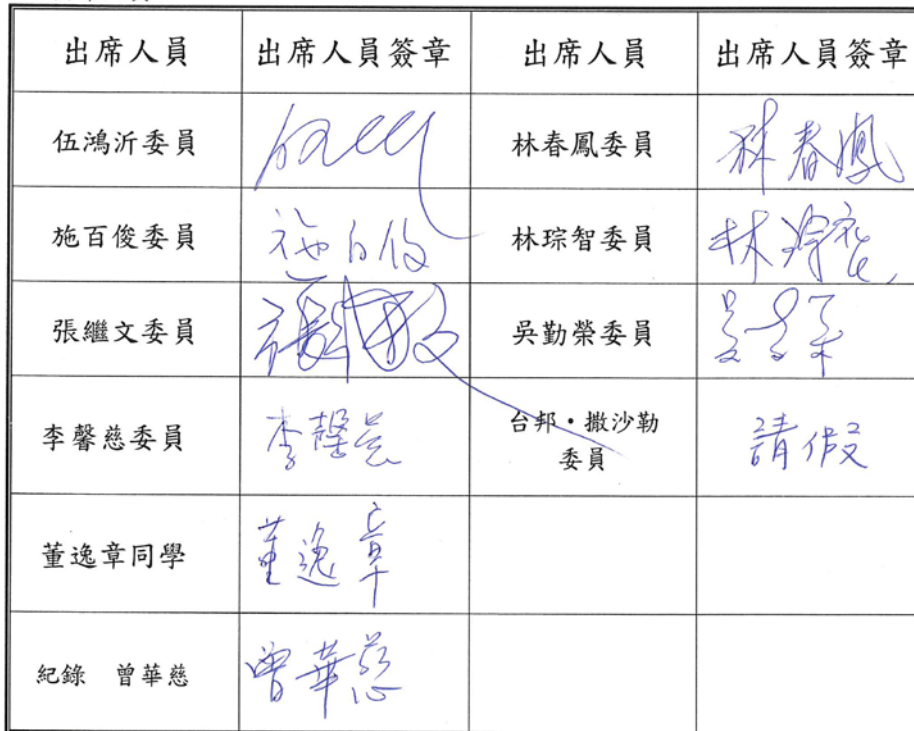 出席人員 出席人員簽章 出席人員 出席人員簽章
伍鴻沂委員 林春鳳委員 林春鳳
施百俊委員 施百俊 林琮智委員 林琮智
張繼文委員 張繼文 吳勤榮委員
李馨慈委員 李馨慈 台邦・撒沙勒
委員 請假
董逸章同學 董逸章
紀錄 曾華慈 曾華慈